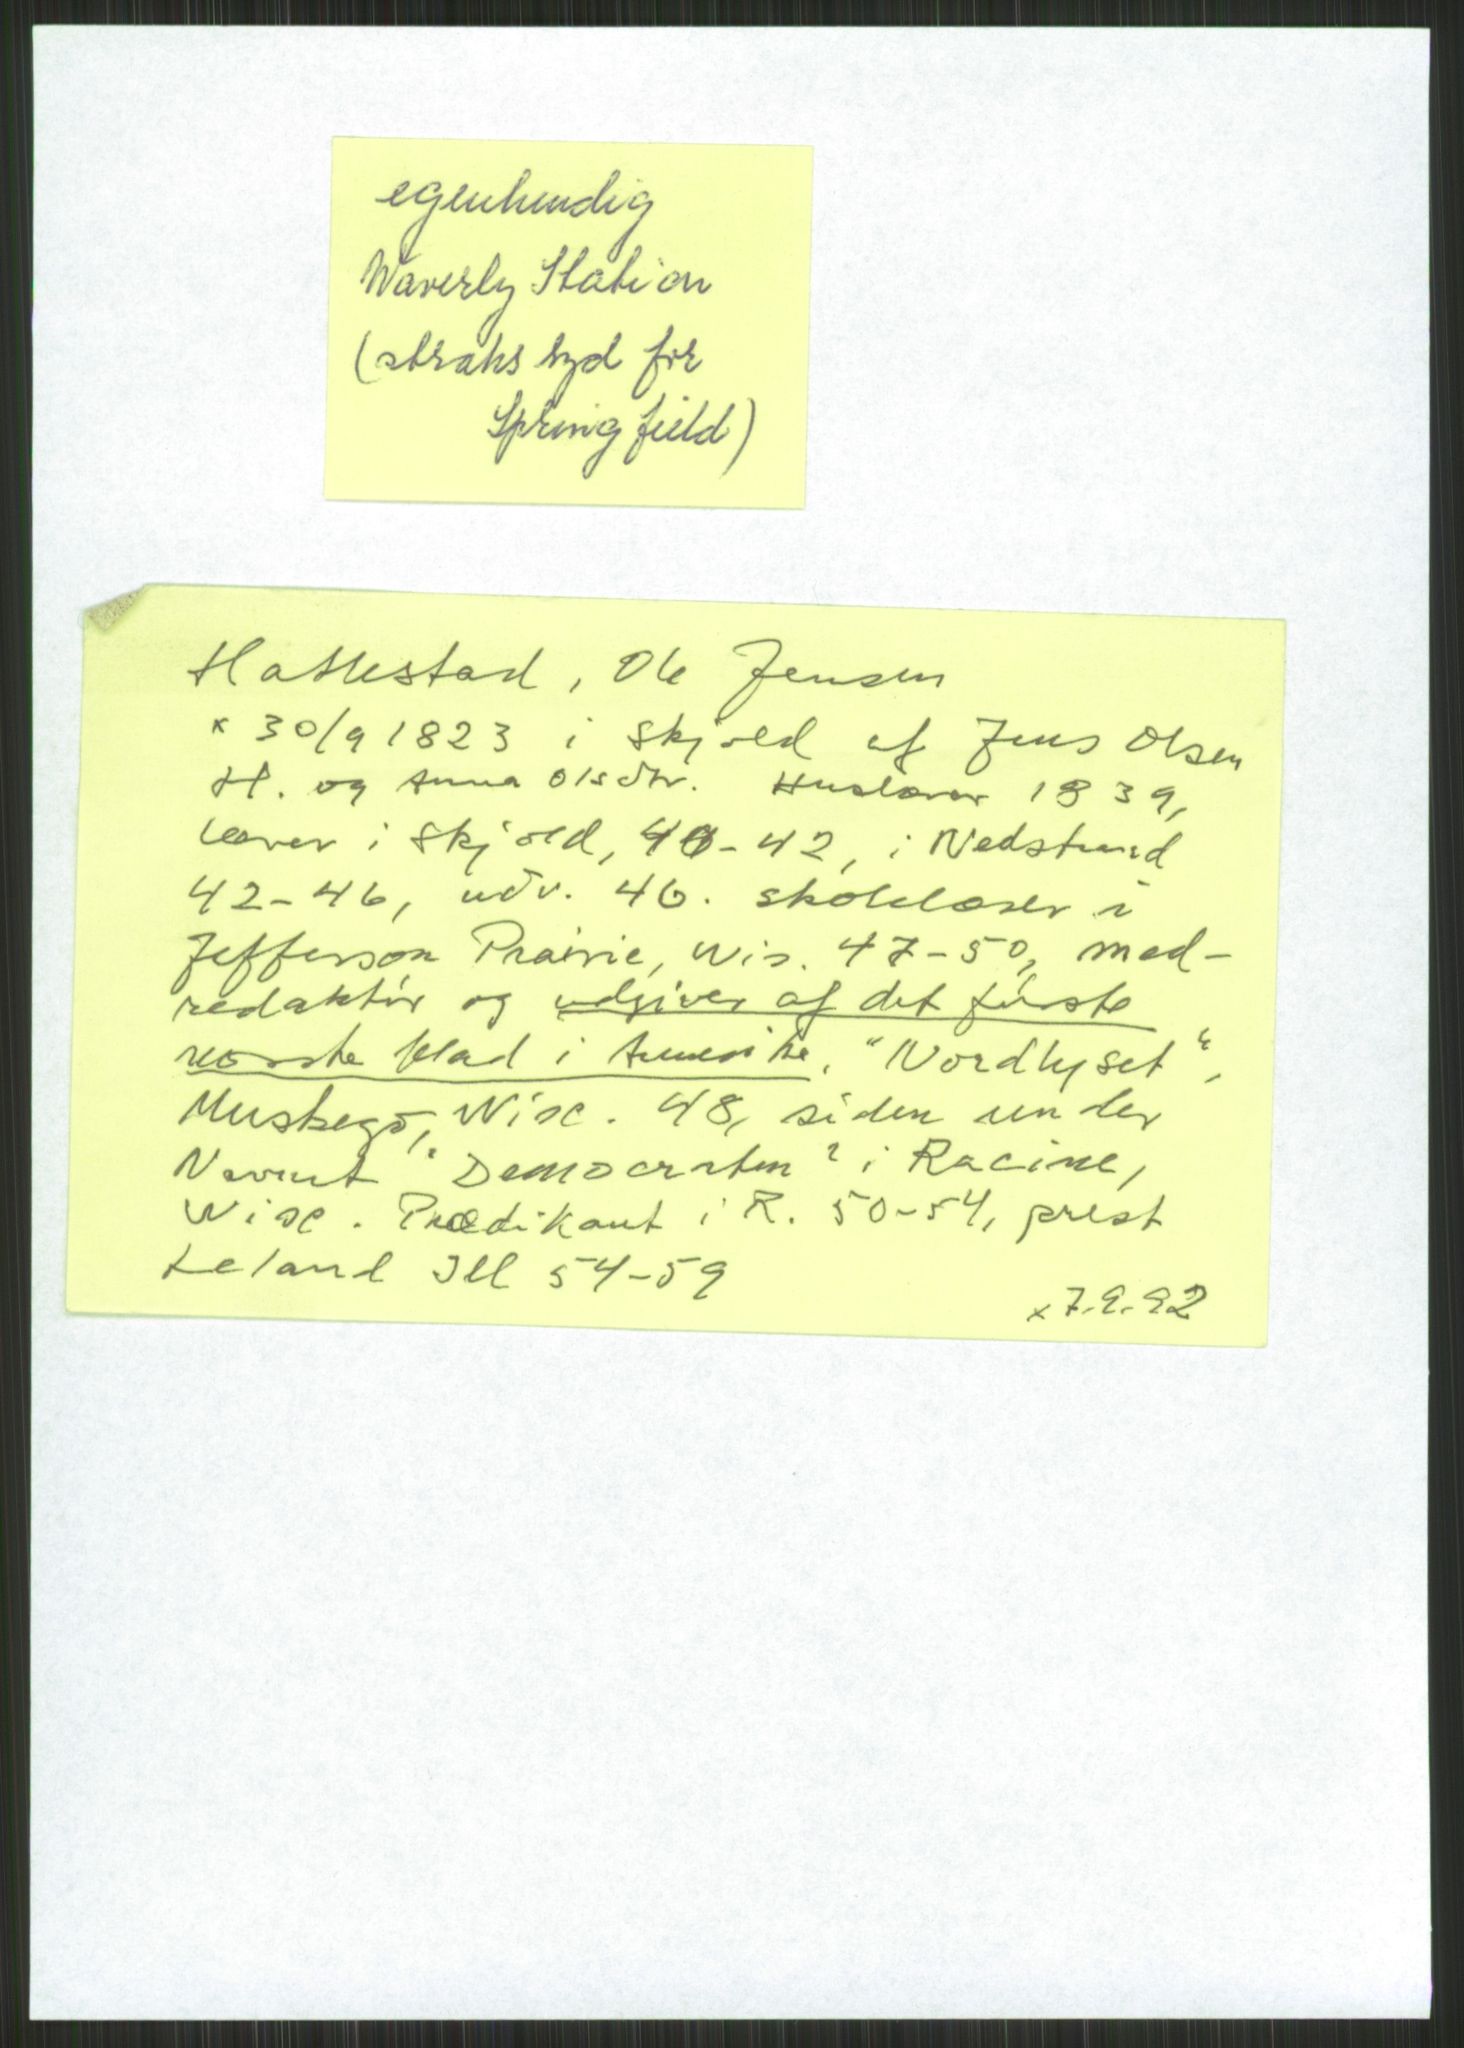 egenhendig
Waverly Station
(straks syd for
Springfield)
Hatlestad, Ole Jensen
x 30/9 1823 i Skjold af Jens Olsen
H. og Anna Olsdtr. Huslærer 1839,
lærer i Skjold, 40-42, i Nedstrand
42-46, udv. 46. skolelærer i
Jefferson Prairie, Wis. 47-50, med-
redaktör og udgiver af det förste
norske blad i Amerika, "Nordlyset",
Muskego, Wisc. 48, siden under
Navnet "Democraten" i Racine,
Wisc. Prædikant i R. 50-54, prest
Leland Ill 54-59
x 7.9.92